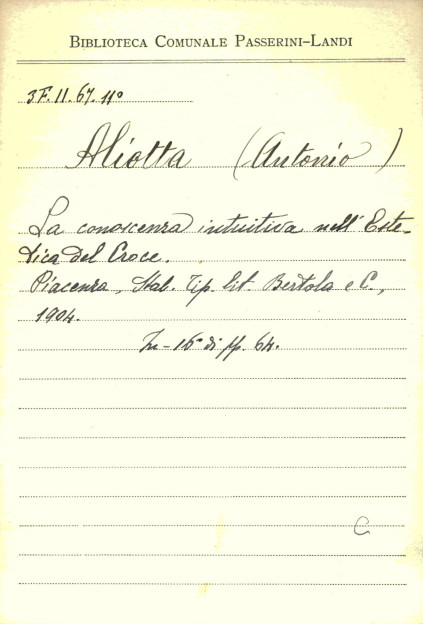 BIBLIOTECA COMUNALE PASSERINI-LANDI
3F.II.67.11º
Aliotta (Antonio)
La conoscenza intuitiva nell'Este-
tica del Croce.
Piacenza, Stab. Tip. Lit. Bertola e C.,
1904.
In-16º di pp. 64.
C